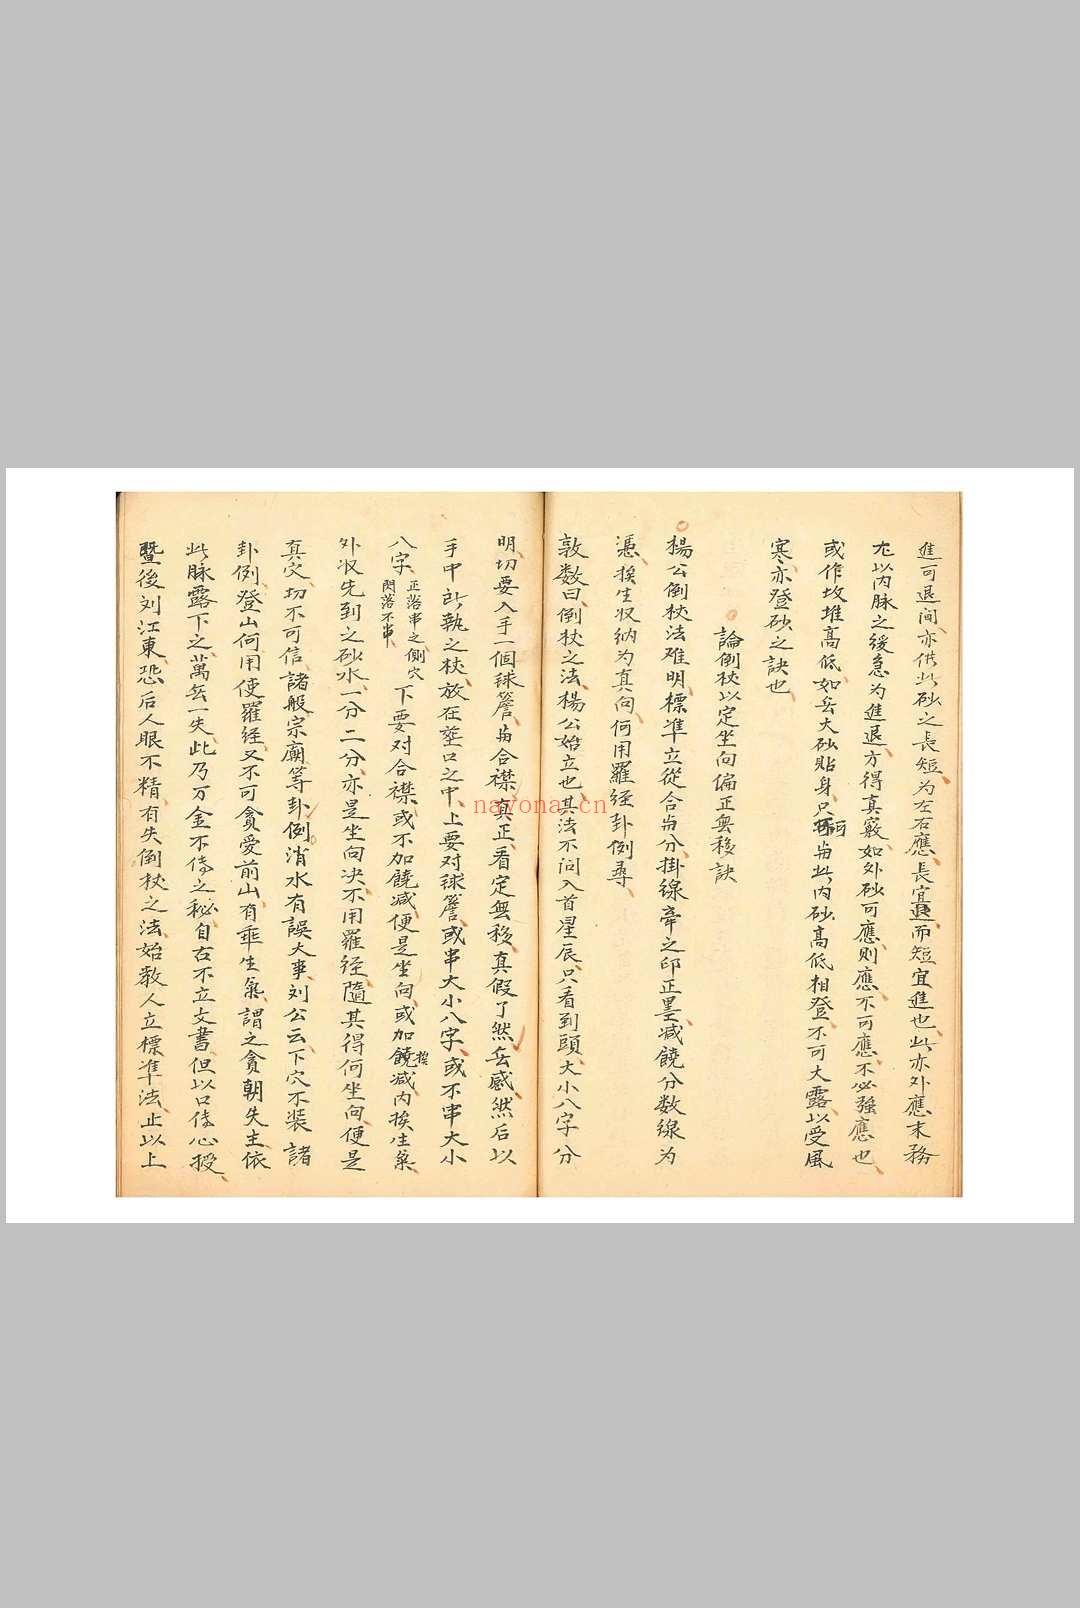 進可退间亦供此砂之長短为左右應長宜退而短宜進也此亦外應末務
尤以内脉之缓急为進退方得真竅如外砂可應则應不可應不必强應也
或作坟堆高低如岳大砂貼身只 与此内砂高低相登不可大露以受風
寒亦登砂之訣也
論倒杖以定坐向偏正無移訣
楊公倒杖法难明標準立從合与分掛線牵之印正墨减饒分数線为
憑挨生収纳为真向何用羅经卦例尋
敦数曰倒杖之法楊公始立也其法不问入首星辰只看到頭大小八字分
明切要入手一個毬簷与合襟真正看定無移真假了然无惑然后以
手中所執之杖放在塟口之中上要对毬簷或串大小八字或不串大小
八字 正落串之側穴閃落不串 下要对合襟或不加饒减便是坐向或加饒减内挨生氣
外収先到之砂水一分二分亦是坐向决不用羅経隨其得何坐向便是
真穴切不可信諸般宗廟等卦例消水有誤大事刘公云下穴不装諸
卦例登山何用使羅经又不可貪愛前山有乖生氣謂之貪朝失主依
此脉露下之萬无一失此乃万金不傳之秘自古不立文書但以口傳心授
暨後刘江東恐后人眼不精有失倒杖之法始教人立標準法止以上
nayona.cn